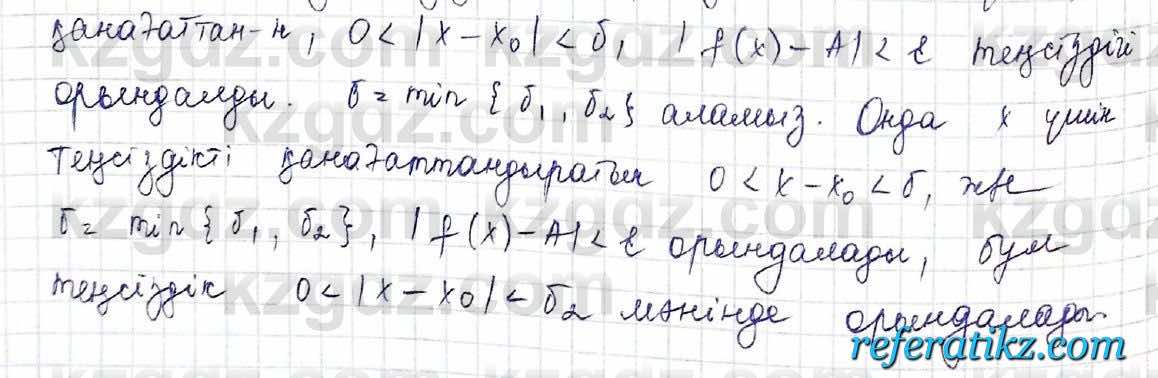 қанағаттан-н, 0 < |x − x₀| < δ, |f(x) − A| < ε теңсіздігі
орындалды. δ = min {δ₁, δ₂} аламыз. Онда x үшін
теңсіздікті қанағаттандыратын 0 < x − x₀ < δ, және
δ = min {δ₁, δ₂}, |f(x) − A| < ε орындалады, бұл
теңсіздік 0 < |x − x₀| < δ₂ мәнінде орындалады.
referatikz.com